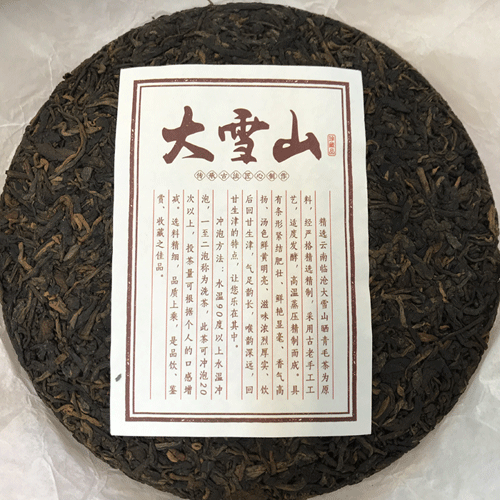 大雪山
珍藏品
传承古法匠心制作
精选云南临沧大雪山晒青毛茶为原
料，经严格精选精制，采用古老手工工
艺，适度发酵，高温蒸压精制而成。具
有条形紧结肥壮、鲜艳显毫、香气高
扬、汤色鲜黄明亮、滋味浓烈厚实、饮
后回甘生津、气足韵长、喉韵深远，回
甘生津的特点，让您乐在其中。
冲泡方法：水温90度以上水温冲
泡，一至二泡称为洗茶，此茶可冲泡20
次以上，投茶量可根据个人的口感增
减。选料精细，品质上乘，是品饮、鉴
赏、收藏之佳品。